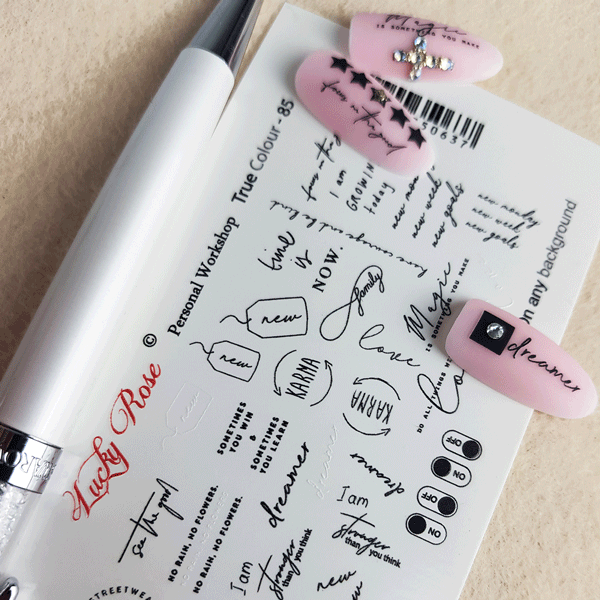 Magic
IS SOMETHING YOU MAKE
50637
True Colour - 85
Personal Workshop
©
Lucky Rose
on any background
I am
GROWING
today
new monday
new week
new goals
new monday
new week
new goals
have courage and be kind
time
is
NOW.
family
new
new
love
Magic
IS SOMETHING YOU MAKE
KARMA
KARMA
DO ALL THINGS
dreamer
new
SOMETIMES
YOU WIN
&
SOMETIMES
YOU LEARN
dreamer
dreamer
dreamer
OFF
ON
OFF
ON
see the good
NO RAIN, NO FLOWERS.
NO RAIN, NO FLOWERS.
I am
stronger
than you think
I am
stronger
than you think
new
STREETWEA